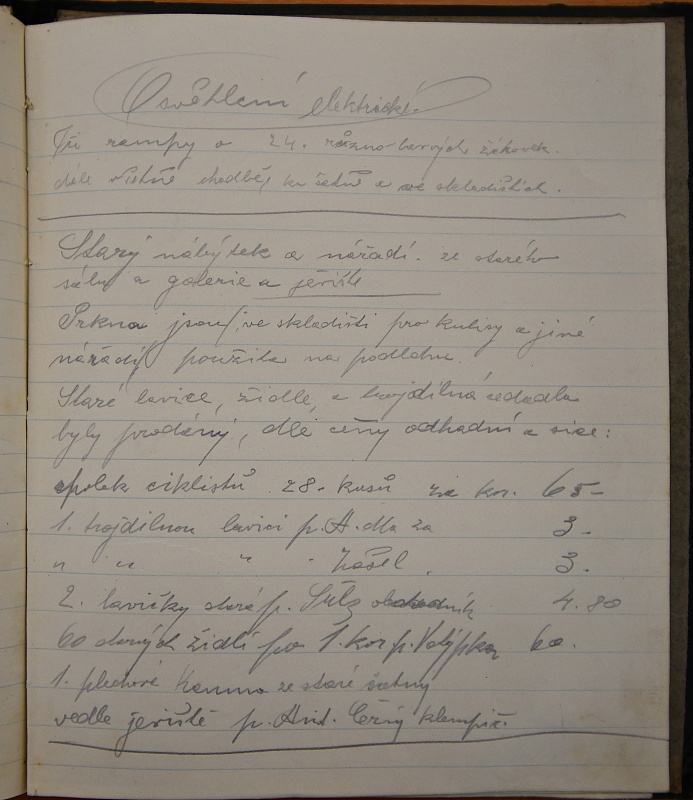 Osvětlení elektrické.
Tři rampy o 24. různo-barvých žárovek.
dále chodbě, ku šatně a ve skladištích.
Starý nábytek a nářadí. ze starého
sálu a galerie a jeviště
Prkna jsou, ve skladišti pro kulisy a jiné
nářadí, použita na podlahu.
Staré lavice, židle, a trojdílná sedadla
byly prodány, dle ceny odhadní a sice:
spolek ciklistů 28. kusů za kor. 65-
1. trojdílnou lavici p. za 3-
" " " " 3.
2. lavičky staré p. obchodník 4.80
60 starých židlí po 1. kor p. 60.
1. plechové kamna ze staré šatny
vedle jeviště p. Ant. Černý klempíř.